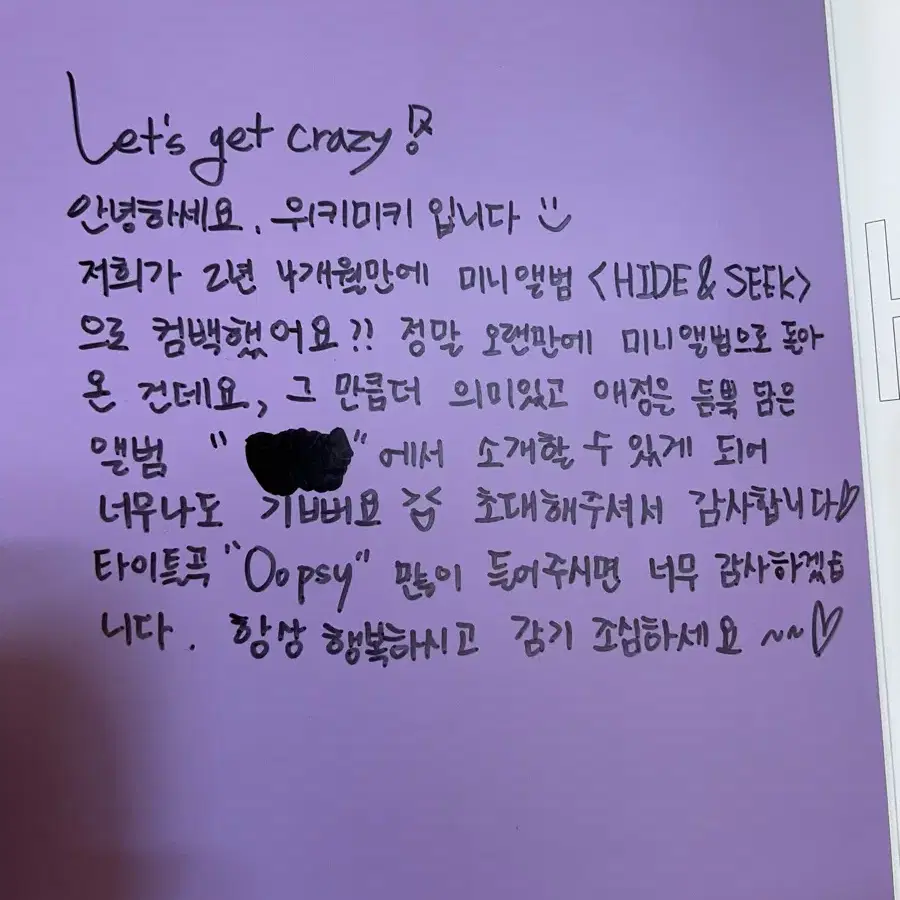 Let's get crazy!
안녕하세요, 위키미키 입니다
저희가 2년 4개월만에 미니앨범 <HIDE & SEEK>
으로 컴백했어요?? 정말 오랜만에 미니앨범으로 돌아
온 건데요, 그 만큼더 의미있고 애정을 듬뿍 담은
앨범 " "에서 소개할 수 있게 되어
너무나도 기뻐요 초대해주셔서 감사합니다♡
타이틀곡 "Oopsy" 많이 들어주시면 너무 감사하겠습
니다. 항상 행복하시고 감기 조심하세요 ~~♡